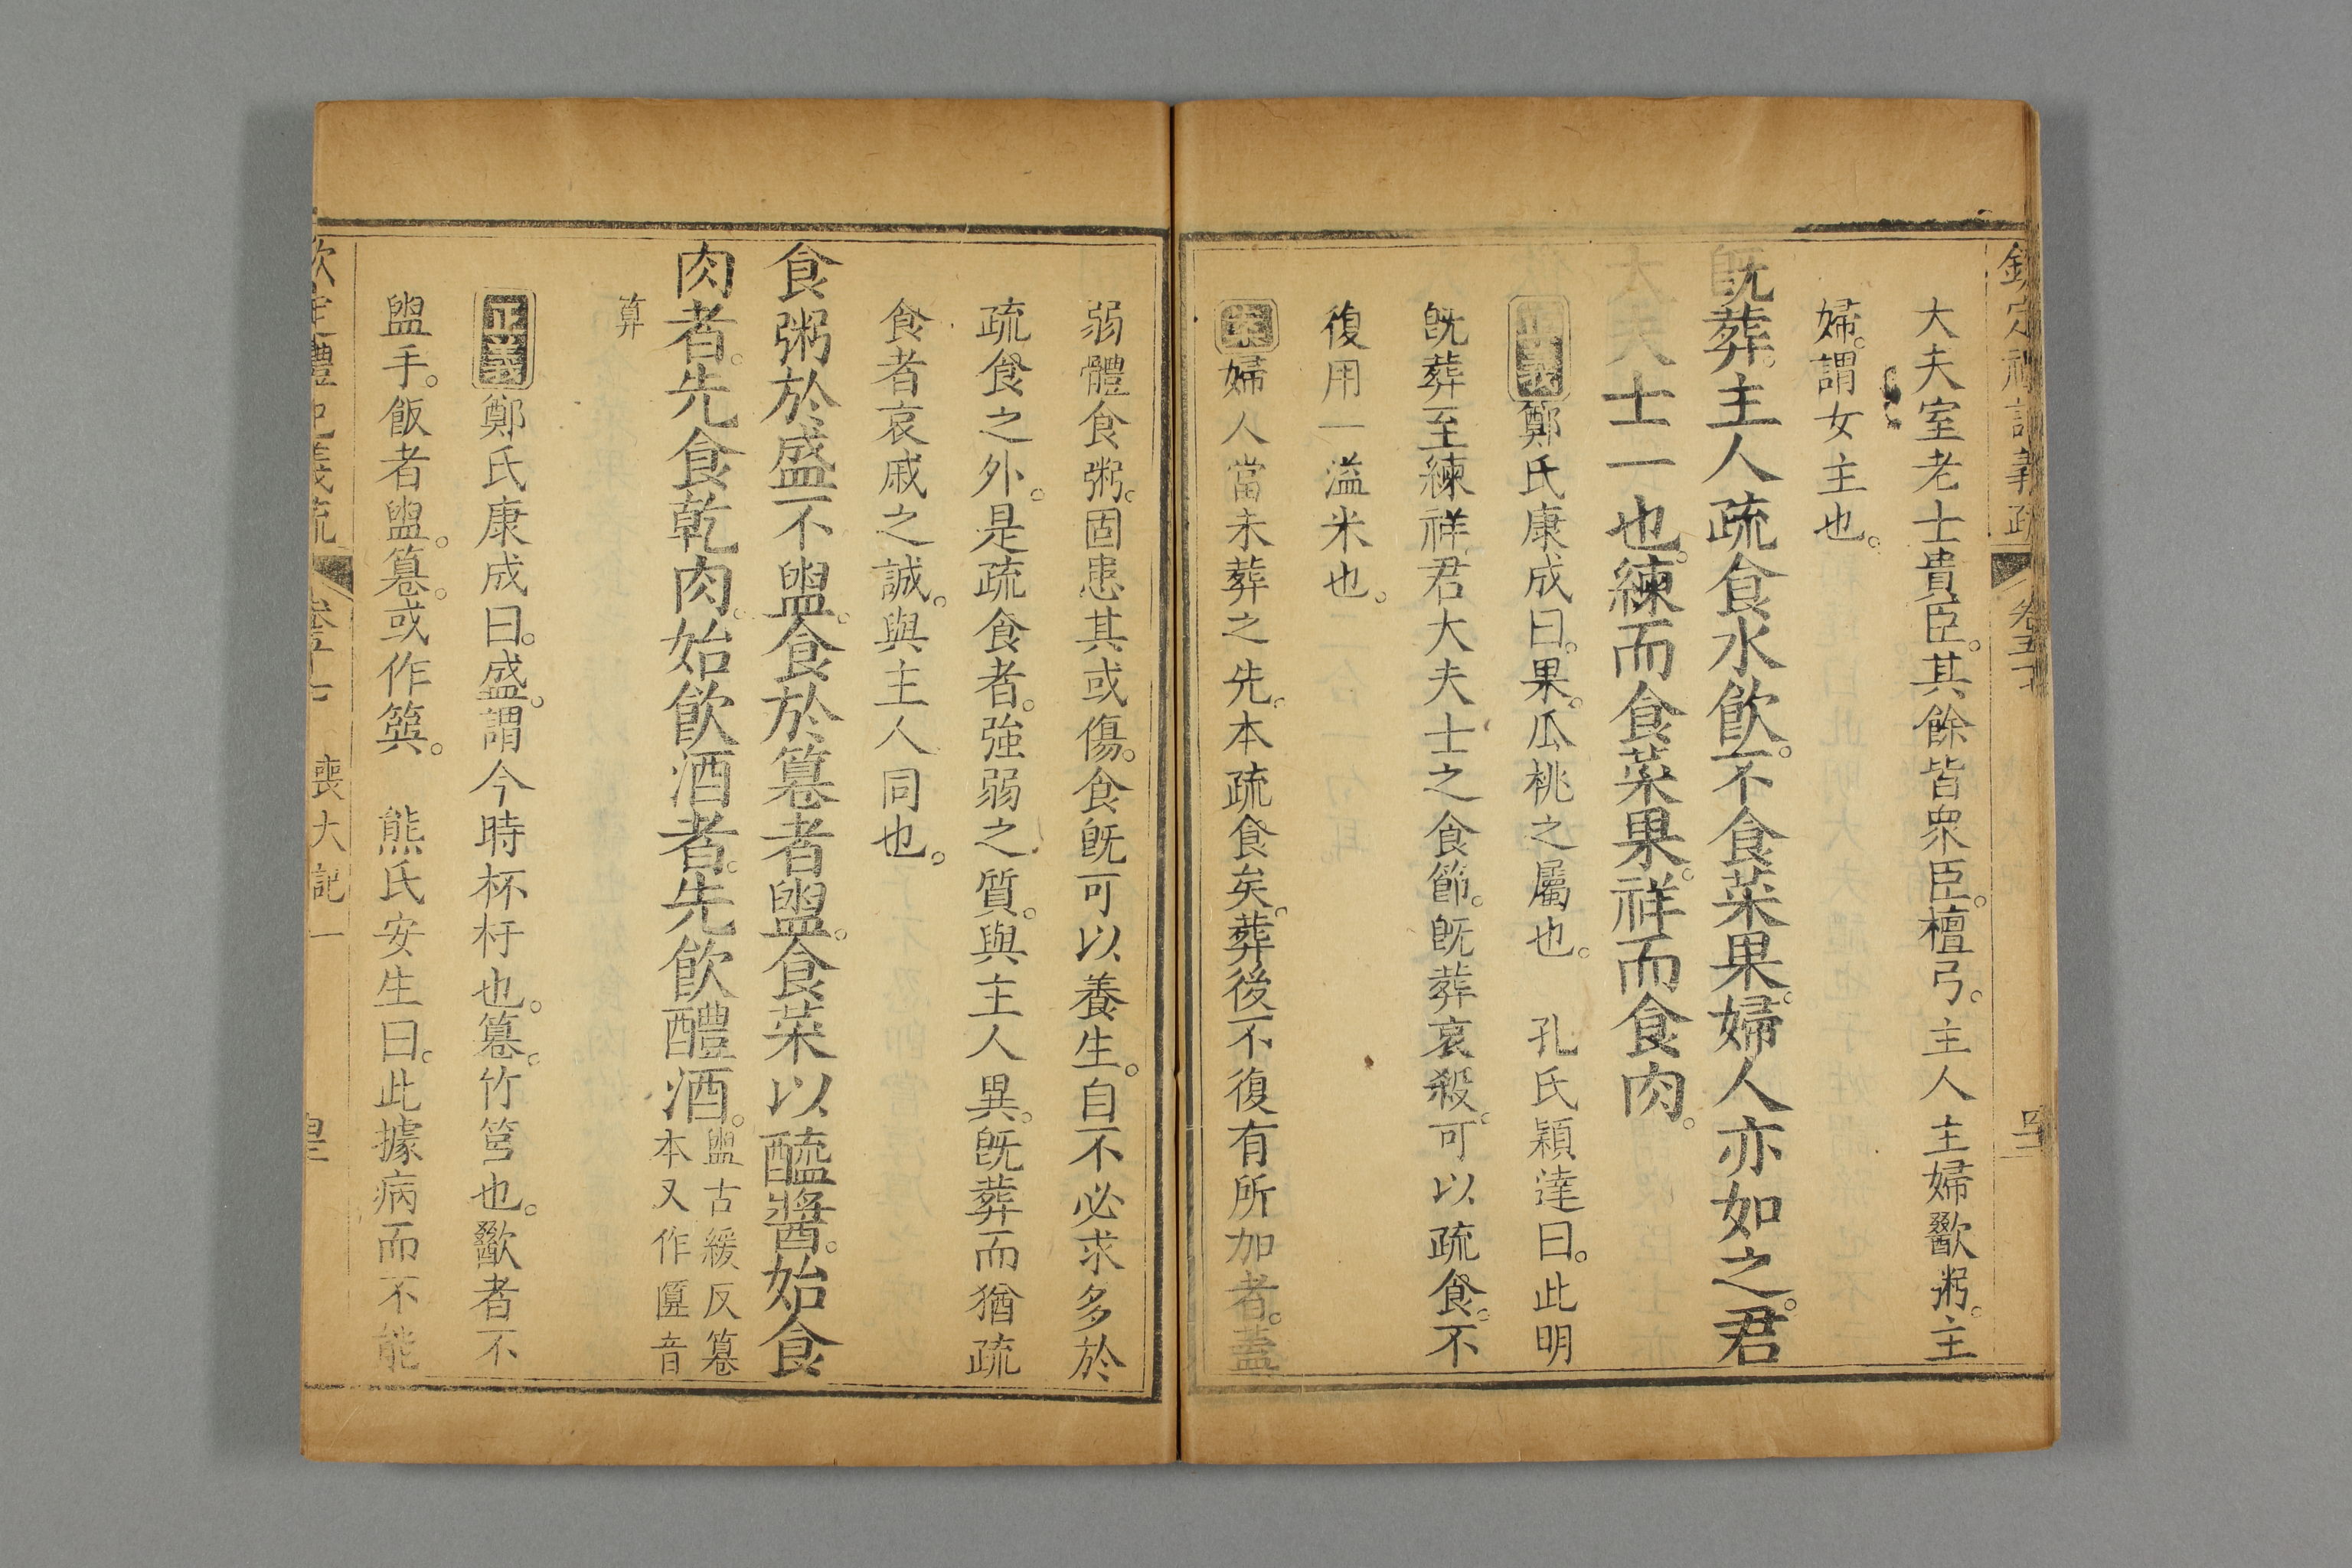 欽定禮記義疏 卷五十 
大夫室老士貴臣。其餘皆衆臣。檀弓。主人主婦歠粥。主
婦。謂女主也。
既葬。主人疏食水飲。不食菜果。婦人亦如之。君
大夫士一也。練而食菜果。祥而食肉。
正義鄭氏康成曰。果。瓜桃之屬也。 孔氏穎達曰。此明
旣葬至練祥君大夫士之食節。旣葬哀殺。可以疏食。不
復用一溢米也。
案婦人當未葬之先。本疏食矣。葬後不復有所加者。蓋
弱體食粥。固患其或傷。食旣可以養生。自不必求多於
疏食之外。是疏食者。強弱之質。與主人異。旣葬而猶疏
食者哀戚之誠。與主人同也。
食粥於盛不盥。食於篹者盥。食菜以醯醬。始食
肉者。先食乾肉。始飲酒者。先飲醴酒。盥古緩反篹
本又作匴音
算
正義鄭氏康成曰。盛。謂今時杯杅也。篹。竹筥也。歠者不
盥手。飯者盥。篹。或作簨。 熊氏安生曰。此據病而不能
欽定禮記義疏 卷五十七 喪大記一